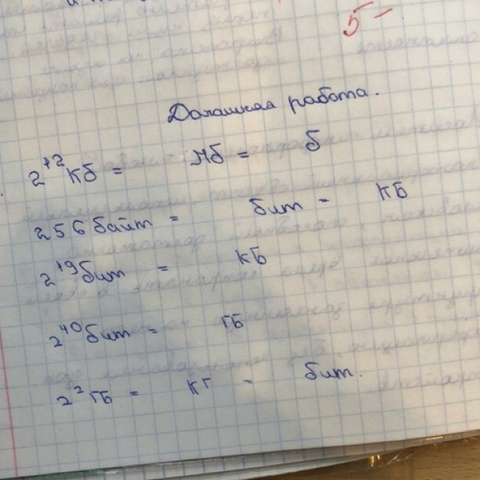 5-
Домашняя работа.
2¹² Кб = Мб = б
256 байт = бит = КБ
2¹⁹ бит = КБ
2⁴⁰ бит = ГБ
2² ГБ = КГ = бит.